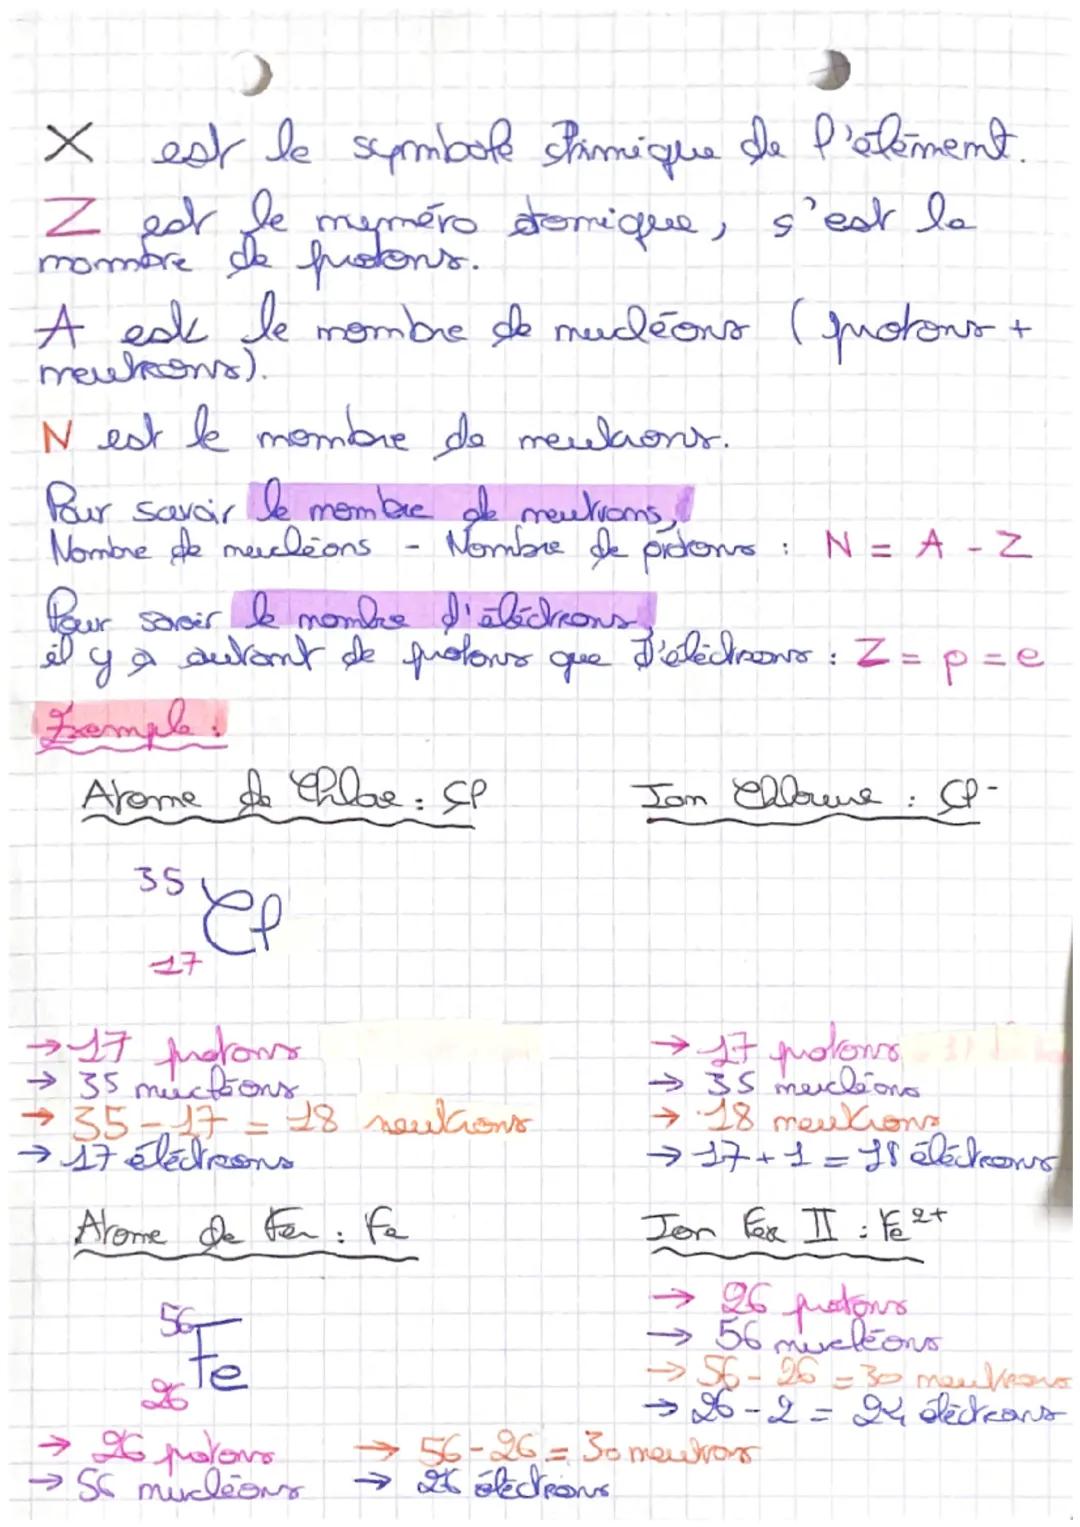 X est le symbole chimique de l'élément.
Z est le numéro atomique, s'est le
nombre de protons.
A est le nombre de nucléons (protons +
neutrons).
N est le nombre de neutrons.
Pour savoir le nombre de neutrons,
Nombre de nucléons - Nombre de protons : N = A - Z
Pour savoir le nombre d'éléctrons,
il y a autant de protons que d'éléctrons : Z = p = e
Exemple :
Atome de Chlore : Cl Ion Chlorure : Cl-
35
Cl
17
→ 17 protons → 17 protons
→ 35 nucléons → 35 nucléons
→ 35-17 = 18 neutrons → 18 neutrons
→ 17 éléctrons → 17+1 = 18 éléctrons
Atome de Fer : Fe Ion Fer II : Fe2+
→ 26 protons
56 → 56 nucléons
Fe → 56-26 = 30 neutrons
26 → 26-2 = 24 éléctrons
→ 26 protons → 56-26 = 30 neutrons
→ 56 nucléons → 26 éléctrons